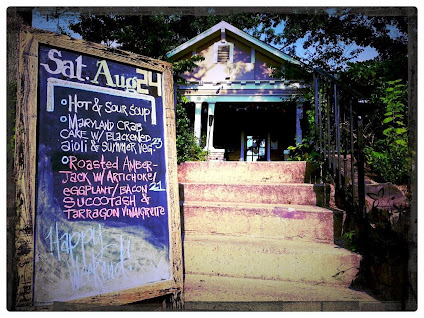 Sat. Aug 24
Hot & Sour Soup
Maryland Crab
Cake w/ Blackened
aioli & summer veg. 23
Roasted Amber-
Jack w/ Artichoke/
eggplant/bacon 21
Succotash &
Tarragon Vinaigrette
Happy
Weekend!